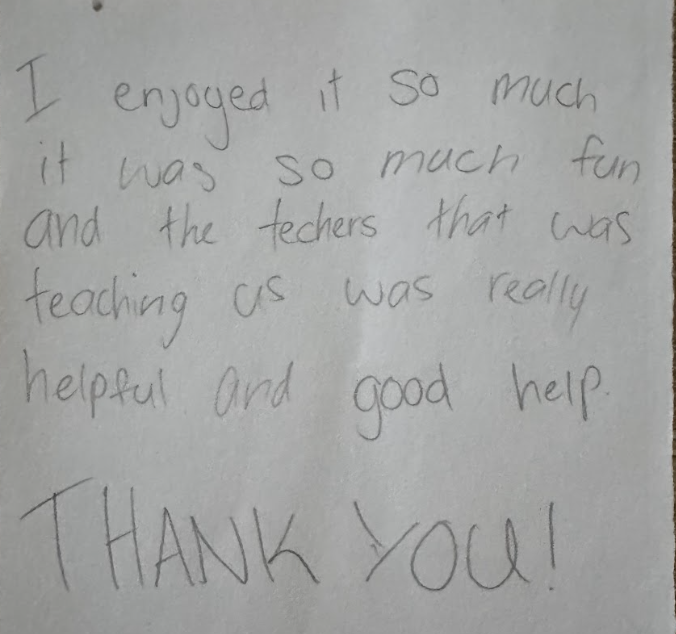 I enjoyed it so much
it was so much fun
and the techers that was
teaching us was really
helpful and good help.
THANK YOU!